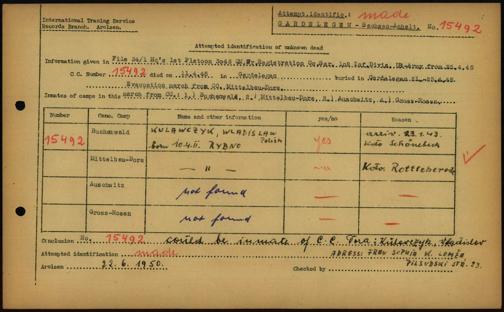 International Tracing Service
Records Branch. Arolsen.
Attempt.identific.: made
GARDELEGEN - Sachsen-Anhalt. No. 15492
Attempted identification of unknown dead
Information given in File
C.C. Number 15492 died on 13.4.45 in Gardelegen buried in Gardelegen
Evacuation march from CC. Mittelbau-Dora.
Inmates of camps in this march from CC.: 1.) Buchenwald, 2.) Mittelbau-Dora, 3.) Auschwitz, 4.) Gross-Rosen.
Number Conc. Camp Any other information yes/no Reason
15492 Buchenwald KULAWCZYK, WLADISLAW Polish born 10.4.11. RYBNO yes arriv. 23.1.43. Kdo Schönebeck
Mittelbau-Dora — " — Kdo: Rottleberode
Auschwitz not found —
Gross-Rosen not found —
Conclusion No. 15492 could be inmate of C.C.
Attempted identification made
ADRESS: FRAU W. LOMŻA,
Arolsen 22.6.1950. Checked by PILSUDSKI STR. 23.